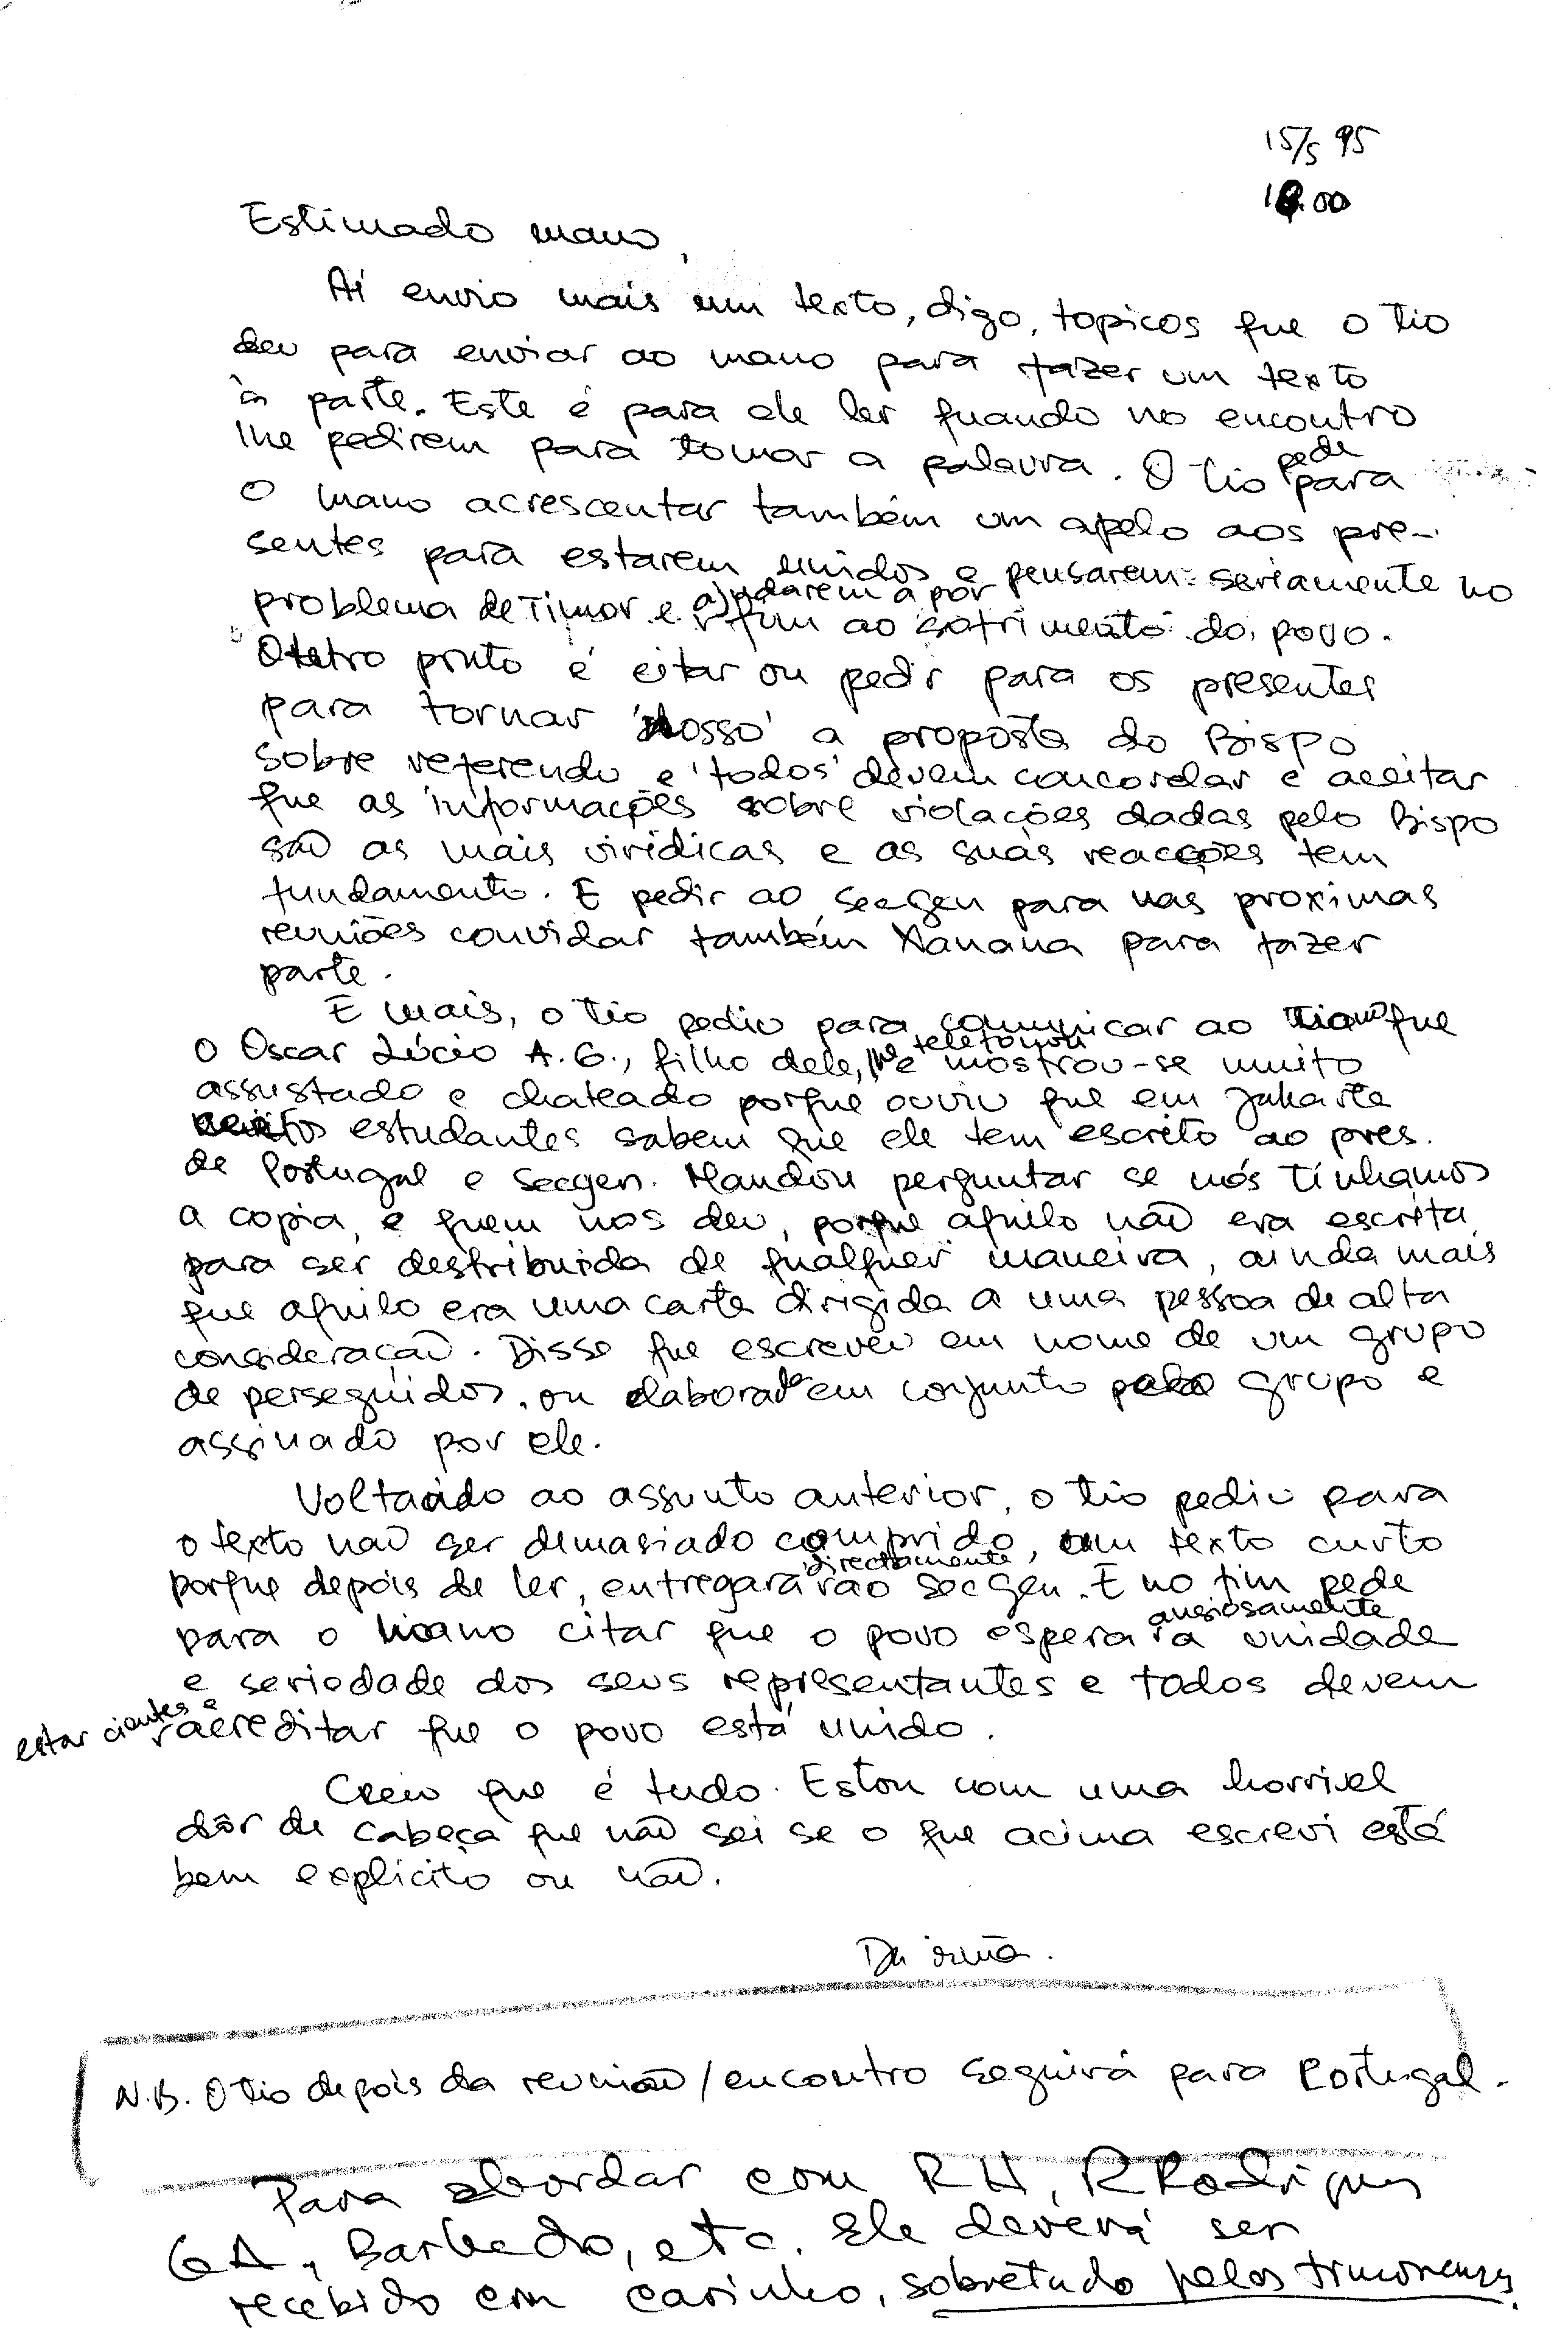 15/5 95
18.00
Estimado mano,
Aí envio mais um texto, digo, topicos que o tio
deu para enviar ao mano para fazer um texto
à parte. Este é para ele ler quando no encontro
lhe pedirem para tomar a palavra. O tio pede para
o mano acrescentar também um apelo aos pre-
sentes para estarem unidos e pensarem seriamente no
problema de Timor e ajudarem a pôr fim ao sofrimento do povo.
Outro ponto é citar ou pedir para os presentes
para tornar 'Nosso' a proposta do Bispo
sobre referendu e 'todos' devem concordar e aceitar
que as informações sobre violações dadas pelo Bispo
são as mais viridicas e as suas reacções tem
fundamento. E pedir ao SecGen para nas proximas
reuniões convidar também Xanana para fazer
parte.
E mais, o tio pediu para comunicar ao mano que
o Oscar Lúcio A.G., filho dele, lhe telefonou e mostrou-se muito
assustado e chateado porque ouviu que em Jakarta
estudantes sabem que ele tem escrito ao pres.
de Portugal e Secgen. Mandou perguntar se nós tínhamos
a copia, e quem nos deu, porque aquilo não era escrita
para ser destribuida de qualquer maneira, ainda mais
que aquilo era uma carta dirigida a uma pessoa de alta
consideração. Disse que escreveu em nome de um grupo
de perseguidos, ou elaborado em conjunto pelo grupo e
assinado por ele.
Voltando ao assunto anterior, o tio pediu para
o texto não ser demasiado comprido, um texto curto
porque depois de ler, entregará directamente ao SecGen. E no fim pede
para o mano citar que o povo espera ansiosamente a unidade
e seriedade dos seus representantes e todos devem
estar cientes e acreditar que o povo está unido.
Creio que é tudo. Estou com uma horrivel
dôr de cabeça que não sei se o que acima escrevi está
bem explicito ou não.
Da irmã.
N.B. O tio depois da reunião/encontro seguirá para Portugal.
Para abordar com RH, R Rodrigues
GA, Barbedo, etc. Ele deverá ser
recebido com carinho, sobretudo pelos timorenses.